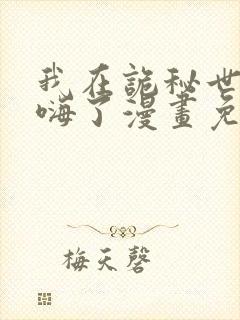 我在詭秘世
嗨了漫畫免
梅天磬